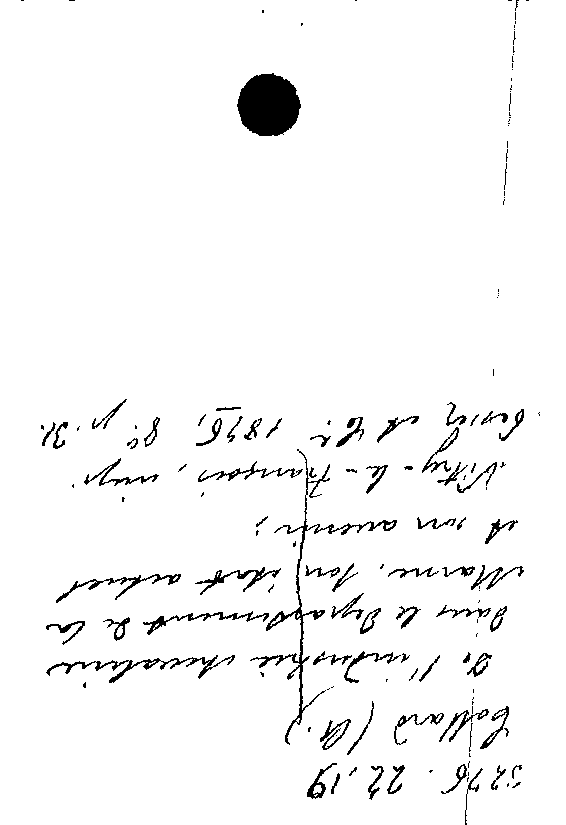 5276. 22.19
Collard (A.)
De l'industrie chevaline
dans le département de la
Marne, son état actuel
et son avenir;
Vitry-le-François, impr.
et Cie 1876, 8º, p. 31.